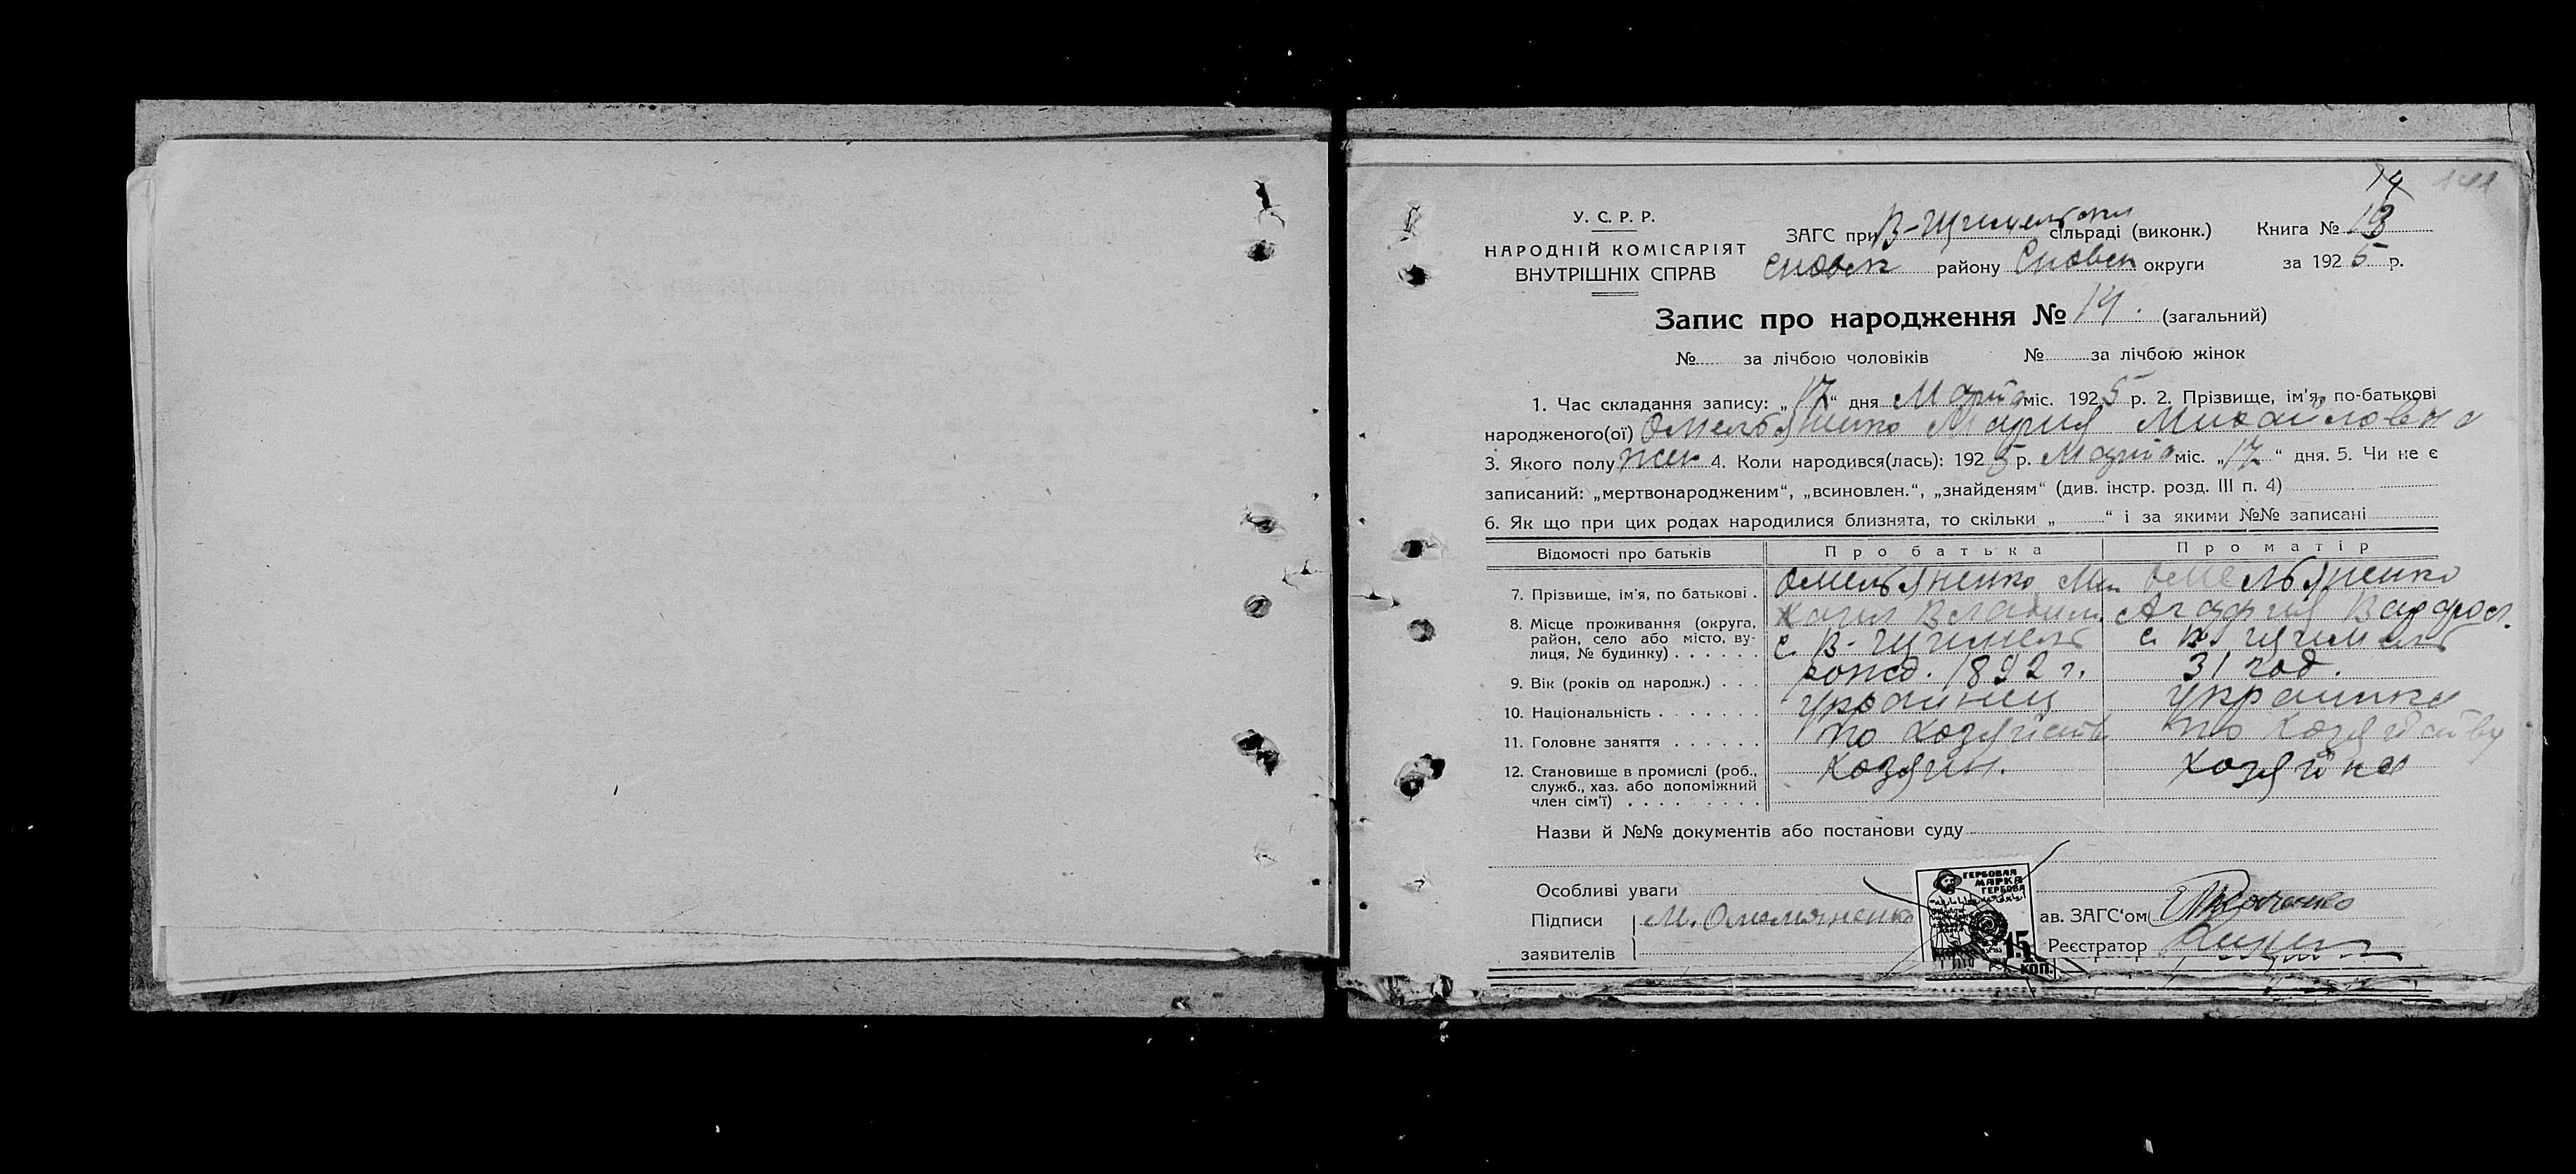 14
141
У. С. Р. Р.
НАРОДНІЙ КОМІСАРІЯТ
ВНУТРІШНІХ СПРАВ
ЗАГС при В-Щимельский сільраді (виконк.) Книга № 13
Сновск району Сновск округи за 1925 р.
Запис про народження № 14. (загальний)
№ за лічбою чоловіків № за лічбою жінок
1. Час складання запису: „17“ дня Марта міс. 1925 р. 2. Прізвище, ім'я, по-батькові
народженого(ої) Омельяненко Мария Михайловна
3. Якого полу жен 4. Коли народився(лась): 1925 р. Марта міс. „17“ дня. 5. Чи не є
записаний: „мертвонародженим“, „всиновлен.“, „знайденям“ (див. інстр. розд. III п. 4)
6. Як що при цих родах народилися близнята, то скільки „ “ і за якими №№ записані
Відомості про батьків Про батька Про матір
7. Прізвище, ім'я, по батькові . Омельяненко Ми Омельяненко
хаил Владим. Агафия
8. Місце проживання (округа,
район, село або місто, ву-
лиця, № будинку) . . . . . . с. В-Щимель с. В. Щимель
9. Вік (років од народж.) . . . рожд. 1892 г. 31 год.
10. Національність . . . . . . . украинец украинка
11. Головне заняття . . . . . . по хозяйств по хозяйству
12. Становище в промислі (роб., хозяин. хозяйка
служб., хаз. або допоміжний
член сім'ї) . . . . . . . . .
Назви й №№ документів або постанови суду
Особливі уваги
Підписи М. Омельяненко
заявителів
ГЕРБОВАЯ
МАРКА
ГЕРБОВА
15
КОП.
ав. ЗАГС'ом Ткаченко
Реєстратор